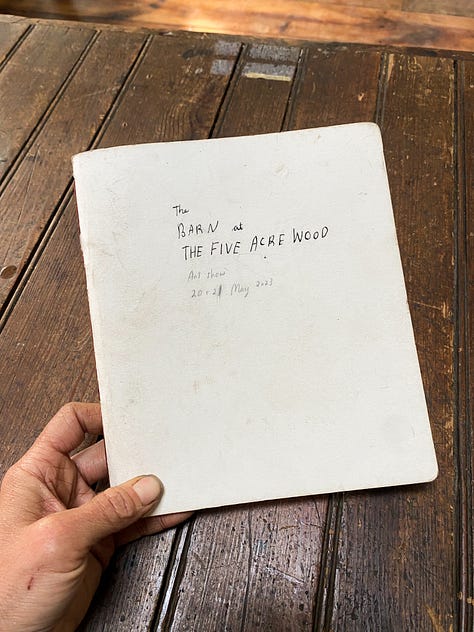 The
BARN at
THE FIVE ACRE WOOD
Art show
20 + 21 May 2023